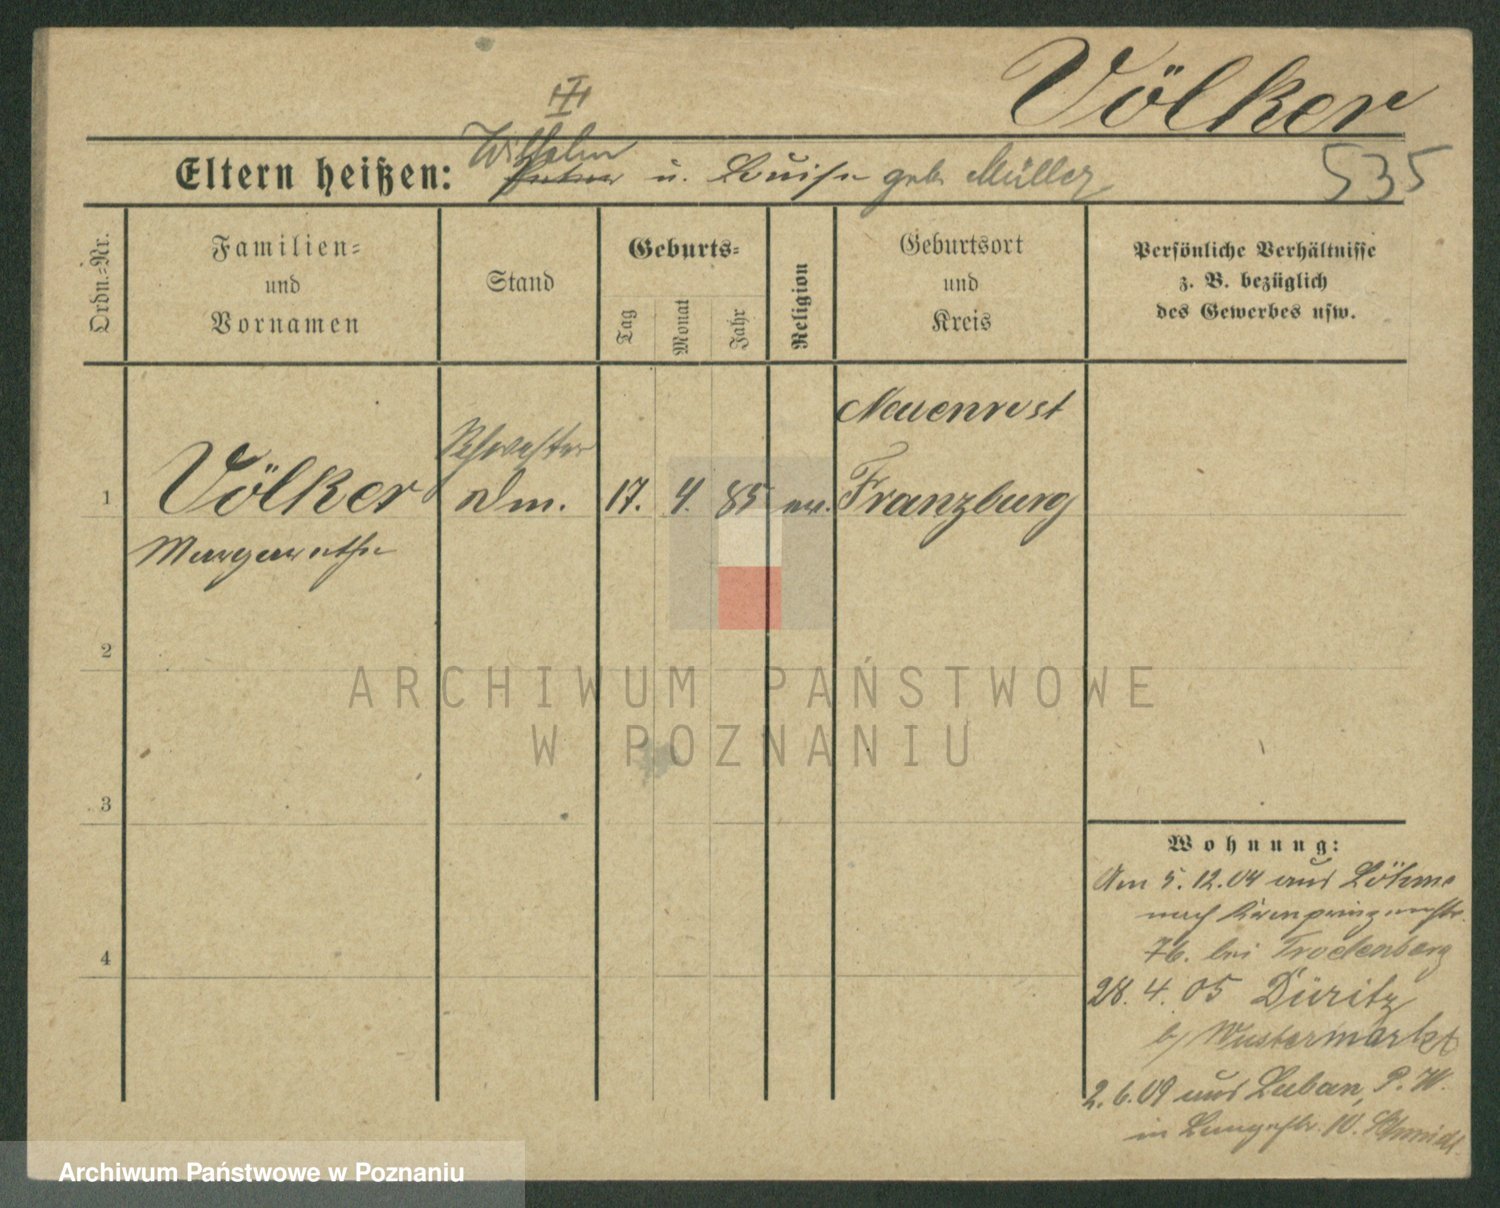 Völker
Wilhelm
Eltern heißen: u. Louise geb. Müller
535
Ordn.=Nr.
Familien=
und
Vornamen
Stand
Geburts=
Tag
Monat
Jahr
Religion
Geburtsort
und
Kreis
Persönliche Verhältnisse
z. B. bezüglich
des Gewerbes usw.
1
Völker
Margarethe
Schwester
17. 4. 85 ev.
Franzburg
2
3
4
Wohnung:
Am 5. 12. 04 aus Löhme
nach Kronprinzenstr.
76. bei
28. 4. 05
b/ Wustermarkt
2. 6. 09 aus Luban, P. W.
in Langestr. 10. Schmidt
ARCHIWUM PAŃSTWOWE
W POZNANIU
Archiwum Państwowe w Poznaniu